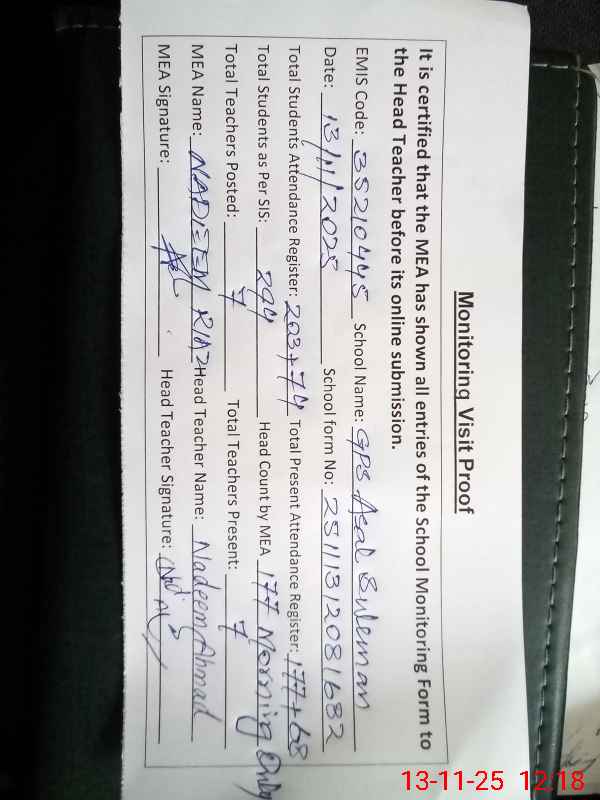 Monitoring Visit Proof
It is certified that the MEA has shown all entries of the School Monitoring Form to
the Head Teacher before its online submission.
EMIS Code: 35210445 School Name: GPS Asal Suleman
Date: 13/11/2025 School form No: 25111312081682
Total Students Attendance Register: 203+74 Total Present Attendance Register: 177+68
Total Students as Per SIS: 294 Head Count by MEA 177 Morning Only
Total Teachers Posted: 7 Total Teachers Present: 7
MEA Name: NADEEM RIAZ Head Teacher Name: Nadeem Ahmad
MEA Signature: Head Teacher Signature:
13-11-25 12:18